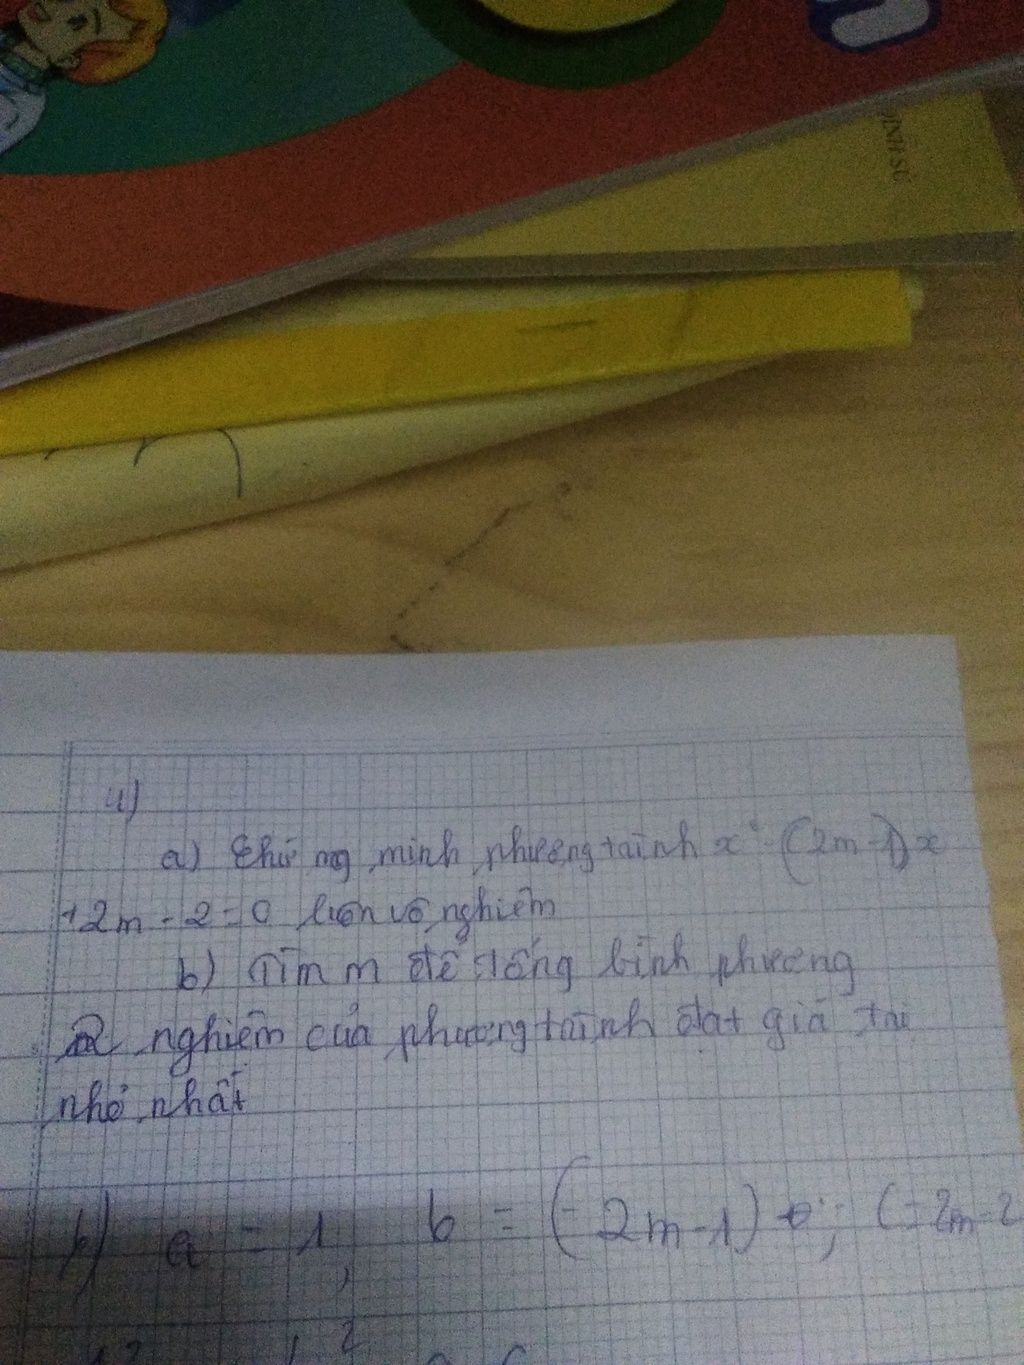 4)
a) Chứng minh phương trình x² - (2m-1)x
+2m - 2 = 0 luôn vô nghiệm
b) Tìm m để tổng bình phương
2 nghiệm của phương trình đạt giá tại
nhỏ nhất
a = 1; b = (-2m-1); c = 2m-2